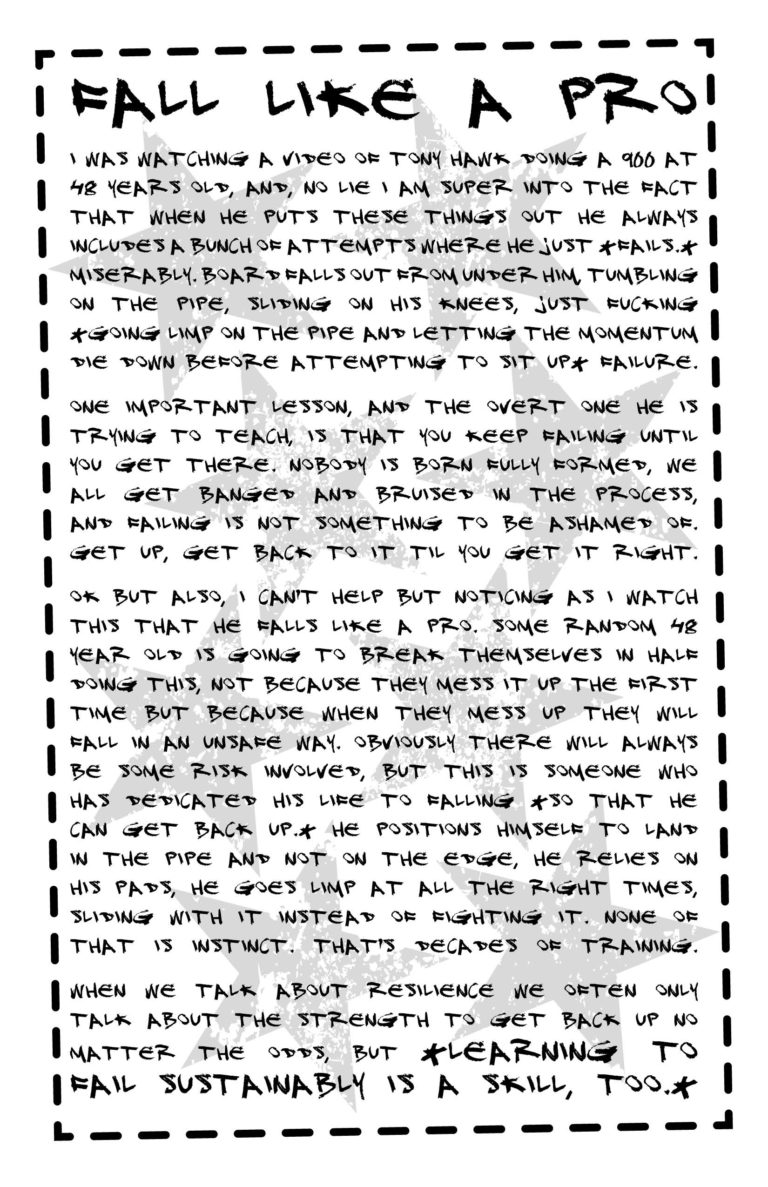 FALL LIKE A PRO
I WAS WATCHING A VIDEO OF TONY HAWK DOING A 900 AT
48 YEARS OLD, AND, NO LIE I AM SUPER INTO THE FACT
THAT WHEN HE PUTS THESE THINGS OUT HE ALWAYS
INCLUDES A BUNCH OF ATTEMPTS WHERE HE JUST *FAILS.*
MISERABLY. BOARD FALLS OUT FROM UNDER HIM, TUMBLING
ON THE PIPE, SLIDING ON HIS KNEES, JUST FUCKING
*GOING LIMP ON THE PIPE AND LETTING THE MOMENTUM
DIE DOWN BEFORE ATTEMPTING TO SIT UP* FAILURE.
ONE IMPORTANT LESSON, AND THE OVERT ONE HE IS
TRYING TO TEACH, IS THAT YOU KEEP FAILING UNTIL
YOU GET THERE. NOBODY IS BORN FULLY FORMED, WE
ALL GET BANGED AND BRUISED IN THE PROCESS,
AND FAILING IS NOT SOMETHING TO BE ASHAMED OF.
GET UP, GET BACK TO IT TIL YOU GET IT RIGHT.
OK BUT ALSO, I CAN'T HELP BUT NOTICING AS I WATCH
THIS THAT HE FALLS LIKE A PRO. SOME RANDOM 48
YEAR OLD IS GOING TO BREAK THEMSELVES IN HALF
DOING THIS, NOT BECAUSE THEY MESS IT UP THE FIRST
TIME BUT BECAUSE WHEN THEY MESS UP THEY WILL
FALL IN AN UNSAFE WAY. OBVIOUSLY THERE WILL ALWAYS
BE SOME RISK INVOLVED, BUT THIS IS SOMEONE WHO
HAS DEDICATED HIS LIFE TO FALLING *SO THAT HE
CAN GET BACK UP.* HE POSITIONS HIMSELF TO LAND
IN THE PIPE AND NOT ON THE EDGE, HE RELIES ON
HIS PADS, HE GOES LIMP AT ALL THE RIGHT TIMES,
SLIDING WITH IT INSTEAD OF FIGHTING IT. NONE OF
THAT IS INSTINCT. THAT'S DECADES OF TRAINING.
WHEN WE TALK ABOUT RESILIENCE WE OFTEN ONLY
TALK ABOUT THE STRENGTH TO GET BACK UP NO
MATTER THE ODDS, BUT *LEARNING TO
FAIL SUSTAINABLY IS A SKILL, TOO.*